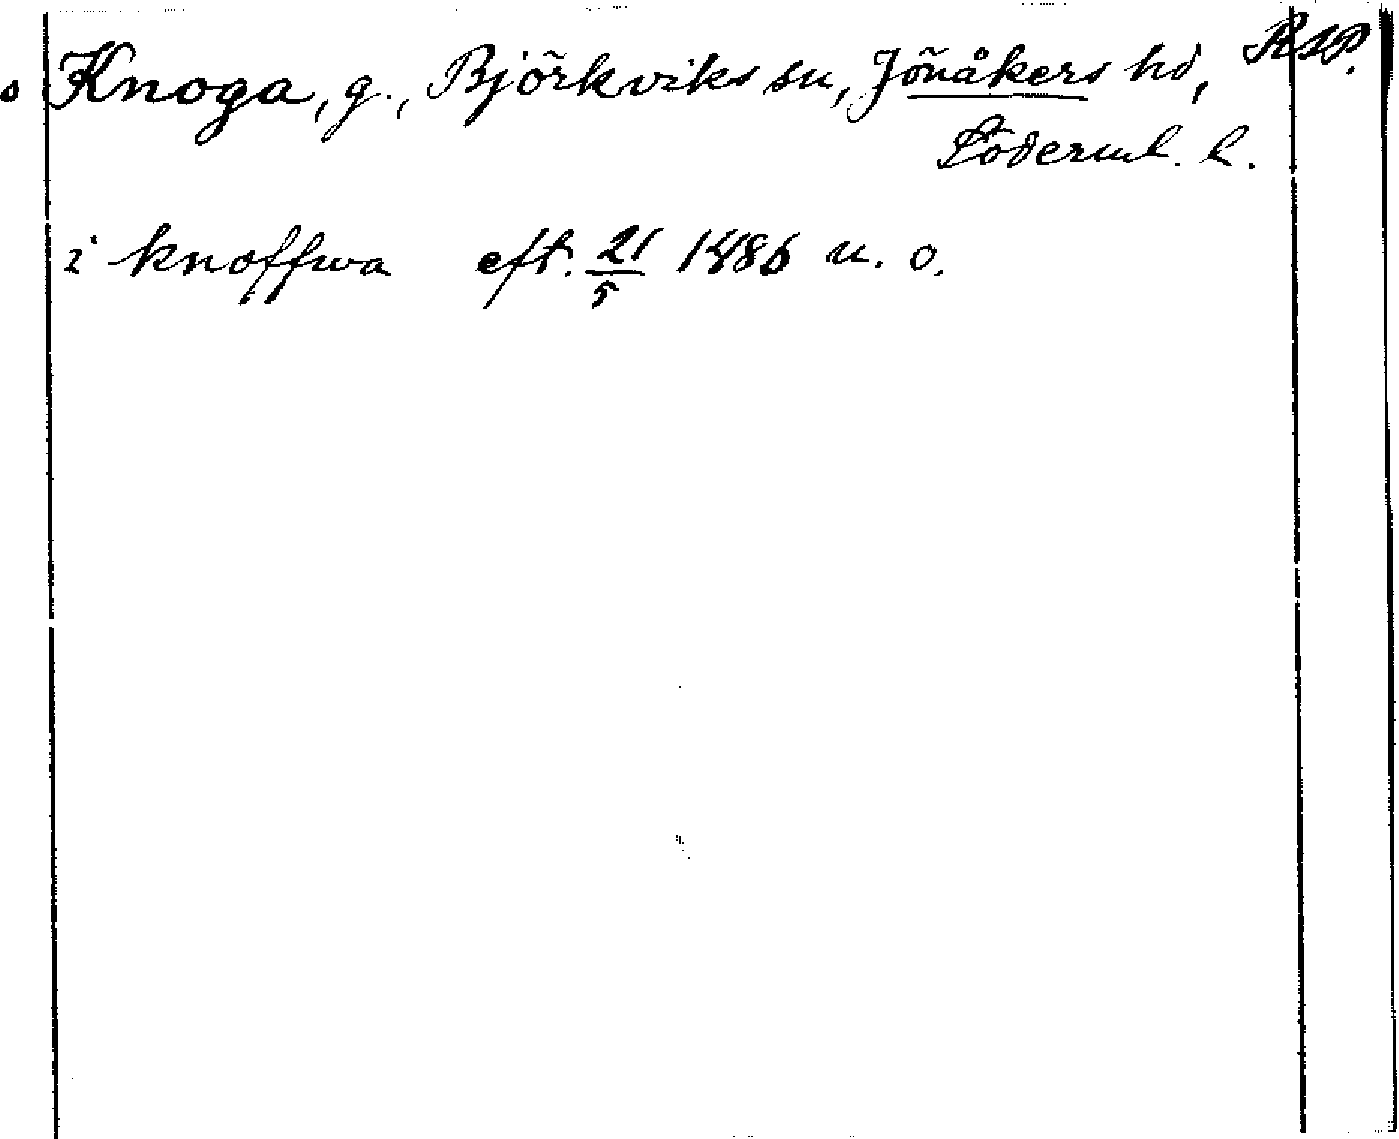 Knoga, g., Björkviks sn, Jönåkers hd, RAP.
Söderml. l.
i knoffwa eft. 21/5 1486 u. o.